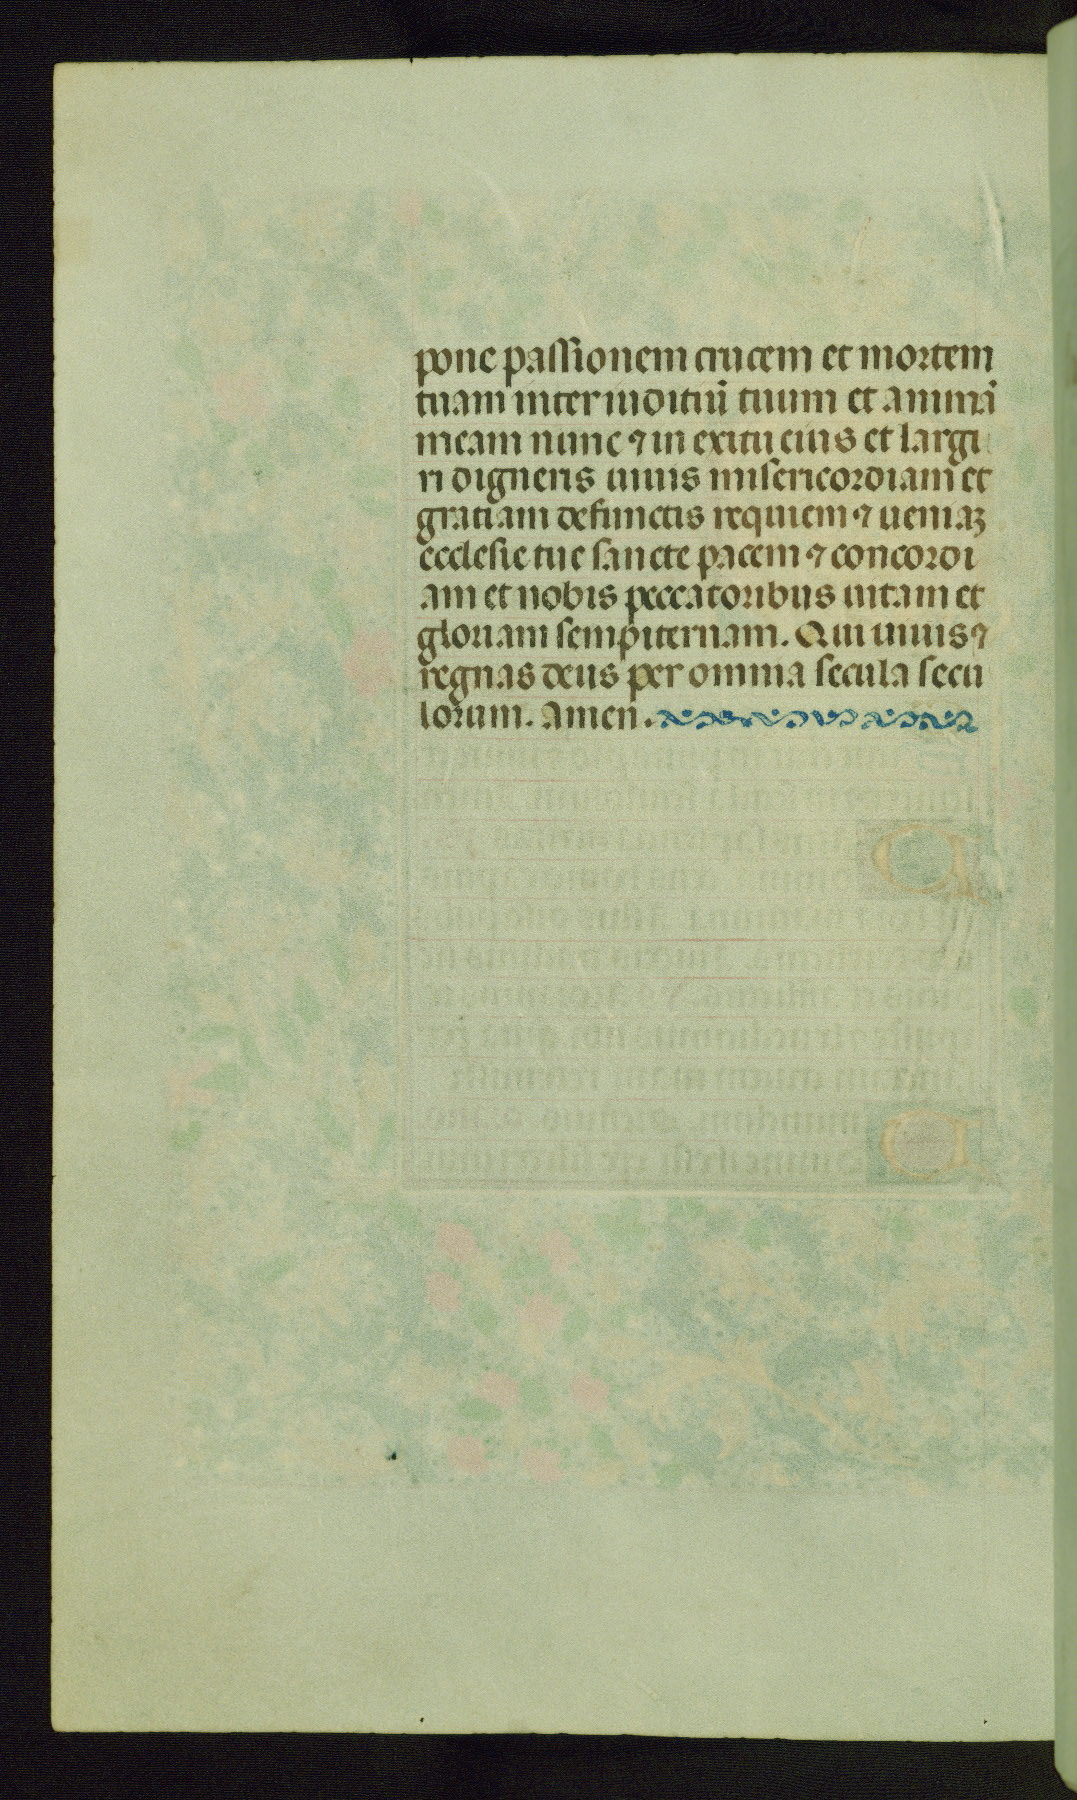 pone passionem crucem et mortem
tuam inter iuditiū tuum et animā
meam nunc ⁊ in exitu eius et largi
ri digneris uiuis misericordiam et
gratiam defunctis requiem ⁊ ueniaꝫ
ecclesie tue sancte pacem ⁊ concordi
am et nobis peccatoribus uitam et
gloriam sempiternam. Qui uiuis ⁊
regnas deus per omnia secula secu
lorum. Amen.